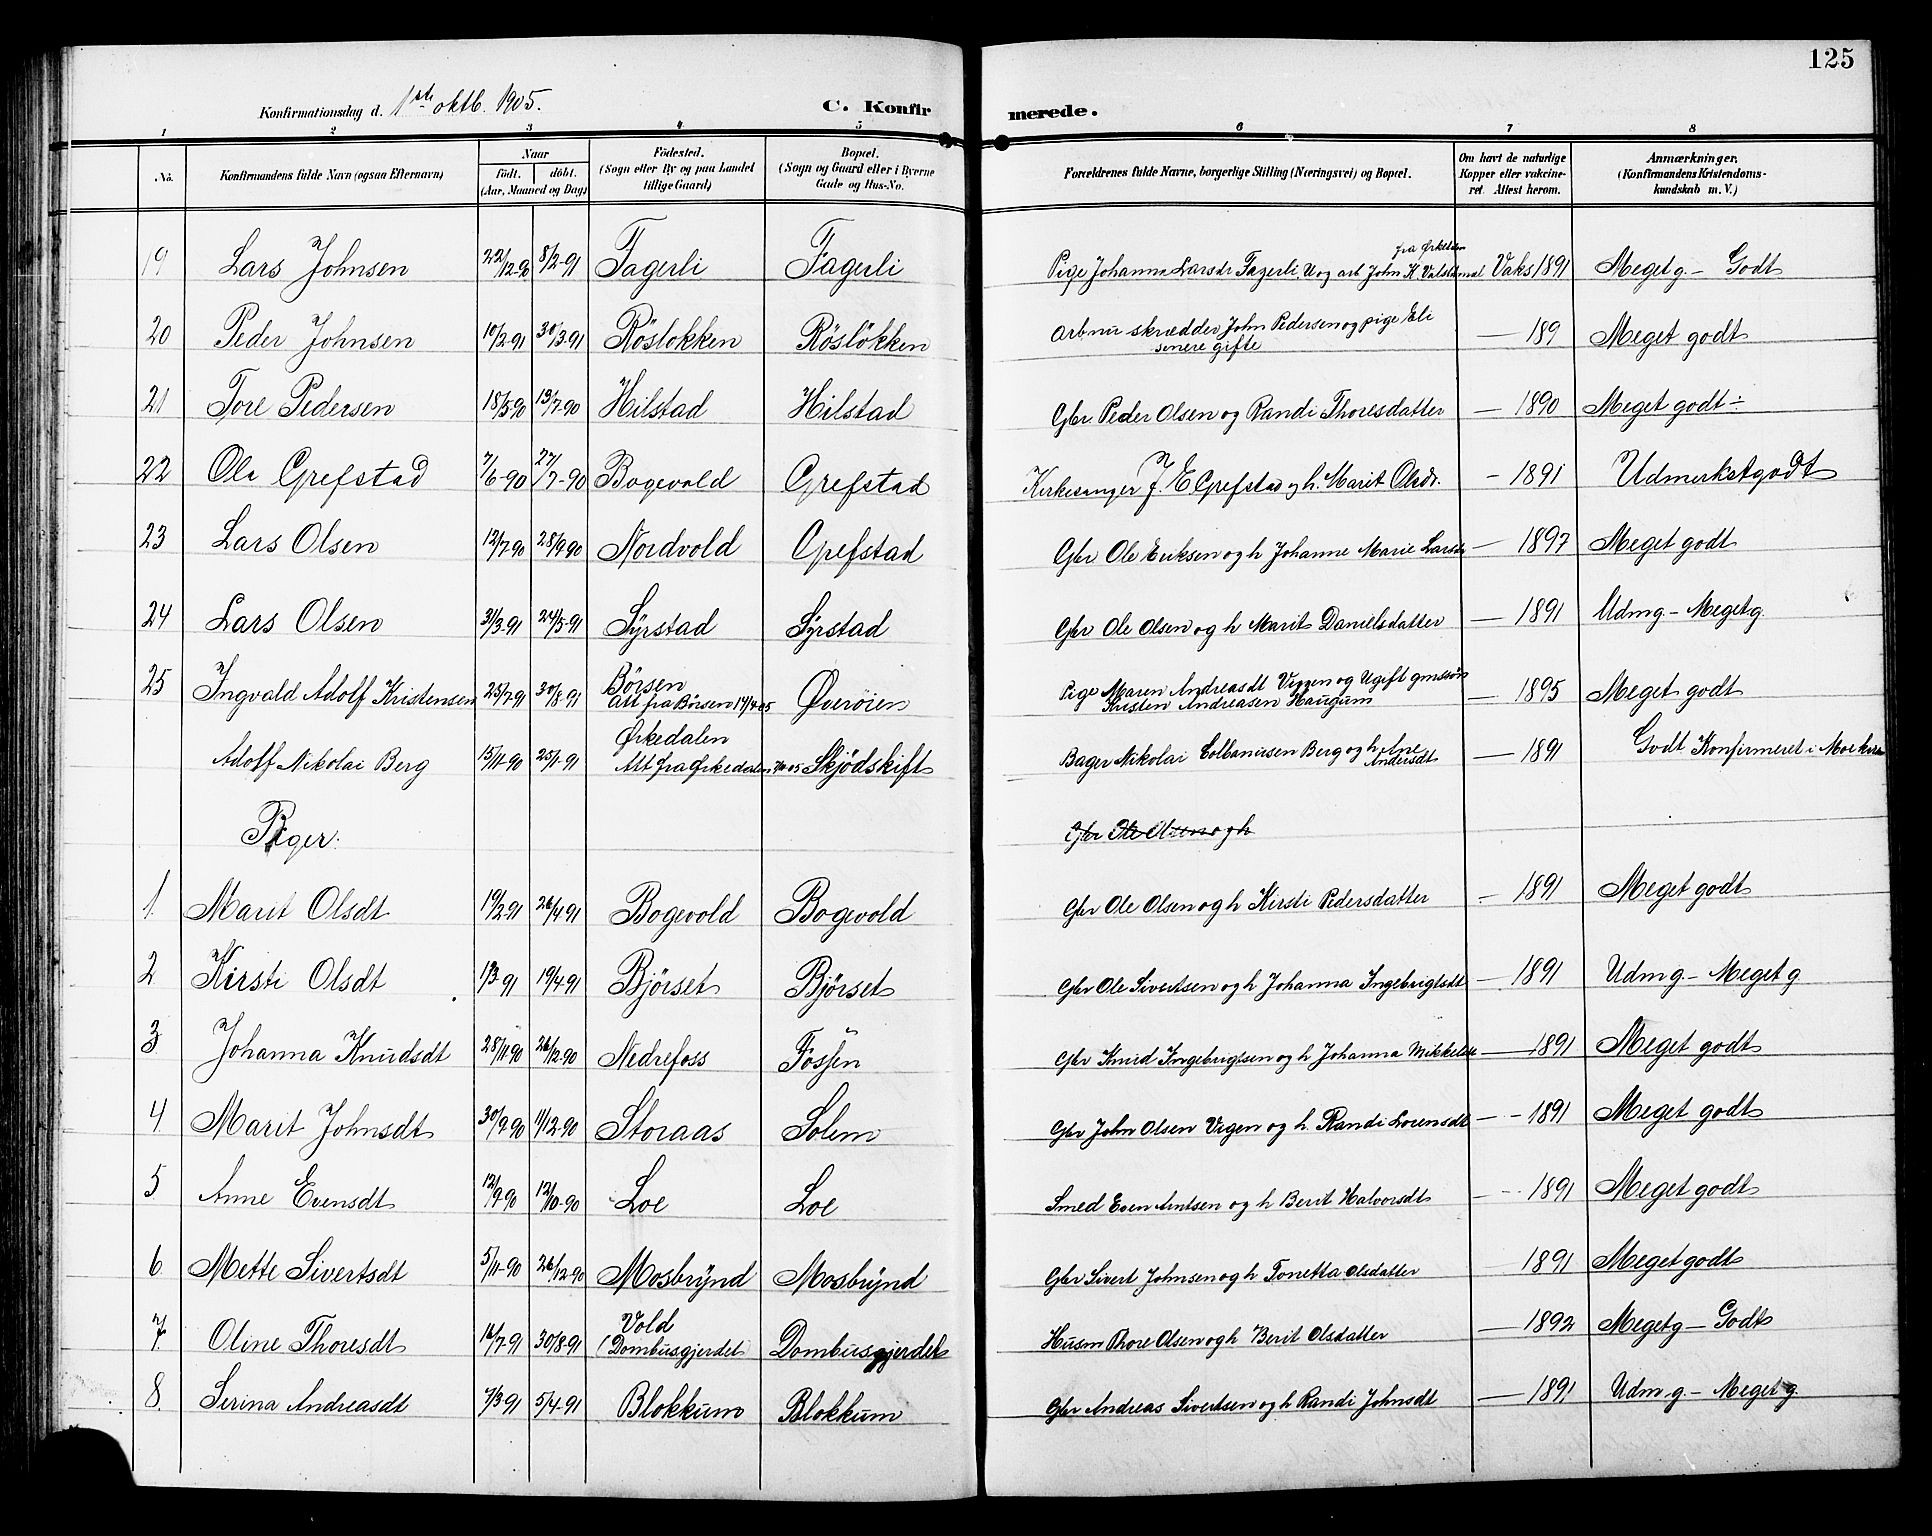 125
Konfirmationsdag d. 1ste oktb. 1905. C. Konfirmerede.
1 2 3 4 5 6 7 8
No. Konfirmandens fulde Navn (ogsaa Efternavn) Naar födt. döbt. (Aar, Maaned og Dag) Födested. (Sogn eller By og paa Landet tillige Gaard) Bopæl. (Sogn og Gaard eller i Byerne Gade og Hus-No. Forældrenes fulde Navne, borgerlige Stilling (Næringsvei) og Bopæl. Om havt de naturlige Kopper eller vaccineret Attest herom. Anmærkninger. (Konfirmandens Kristendomskundskab m. V.)
19 Lars Johnsen 22/12-90 8/2-91 Fagerli Fagerli Pige Johanna Larsdr Fagerli, U og arb John K. fra Ørkedalen Vaks 1891 Meget g. - Godt
20 Peder Johnsen 10/2-91 30/3-91 Röslokken Röslökken Arb nu skrædder John Pedersen og pige Eli senere gifte — 189 Meget godt
21 Tore Pedersen 18/5-90 13/7-90 Hilstad Hilstad Gbr. Peder Olsen og Randi Thoresdatter — 1890 Meget godt ÷
22 Ola Grefstad 7/6-90 27/7-90 Bogevold Grefstad Kirkesanger J. E Grefstad og h. Marit Olsdr. - 1891 Udmerketgodt
23 Lars Olsen 12/7-90 28/9-90 Nordvold Grefstad Gbr Ole Eriksen og h Johanne Marie Larsdr — 1897 Meget godt
24 Lars Olsen 31/3-91 24/5-91 Syrstad Syrstad Gbr Ole Olsen og h Marit Danielsdatter — 1891 Udm g - Meget g.
25 Ingvald Adolf Kristensen 25/7-91 30/8-91 Börsen Att fra Börsen 17/4-05 Øverøien Pige Maren Andreasdt Viggen og Ugift gmssön Kristen Andreasen Haugum — 1895 Meget godt
Adolf Nikolai Berg 15/11-90 25/1-91 Ørkedalen Att fra Ørkedalen Skjödskift Bager Nikolai Berg og h Ane Andersdt — 1891 Godt Konfirmeret i Moe
Piger. Gbr Ole Olsen og h
1 Marit Olsdt 19/2-91 26/4-91 Bogevold Bogevold Gbr Ole Olsen og h Kirsti Pedersdatter - 1891 Meget godt
2 Kirsti Olsdt 1/3-91 19/4-91 Bjørset Bjørset Gbr Ole Sivertsen og h Johanna Ingebrigtsdt — 1891 Udm g. - Meget g
3 Johanna Knudsdt 28/11-90 26/12-90 Nedrefoss Fossen Gbr Knud Ingebrigtsen og h Johanna Mikkelsdt — 1891 Meget godt
4 Marit Johnsdt 30/9-90 11/12-90 Storaas Solem Gbr John Olsen Vigen og h. Randi Lorensdt - - 1891 Meget godt
5 Anne Evensdt 12/9-90 12/10-90 Loe Loe Smed Even Arntsen og h Berit Halvorsdt - - 1891 Meget godt
6 Mette Sivertsdt 5/11-90 26/12-90 Mosbrynd Mosbrynd Gbr Sivert Johnsen og h Tonetta Olsdatter — 1891 Meget godt
7. Oline Thoresdt 16/7-91 30/8-91 Vold (Dombusgjerdet Dombusgjerdet Husm Thore Olsen og h Berit Olsdatter — 1892 Meget g - Godt
8 Serina Andreasdt 7/3-91 5/4-91 Blokkum Blokkum Gbr Andreas Sivertsen og h Randi Johnsdt — 1891 Udm g. - Meget g.